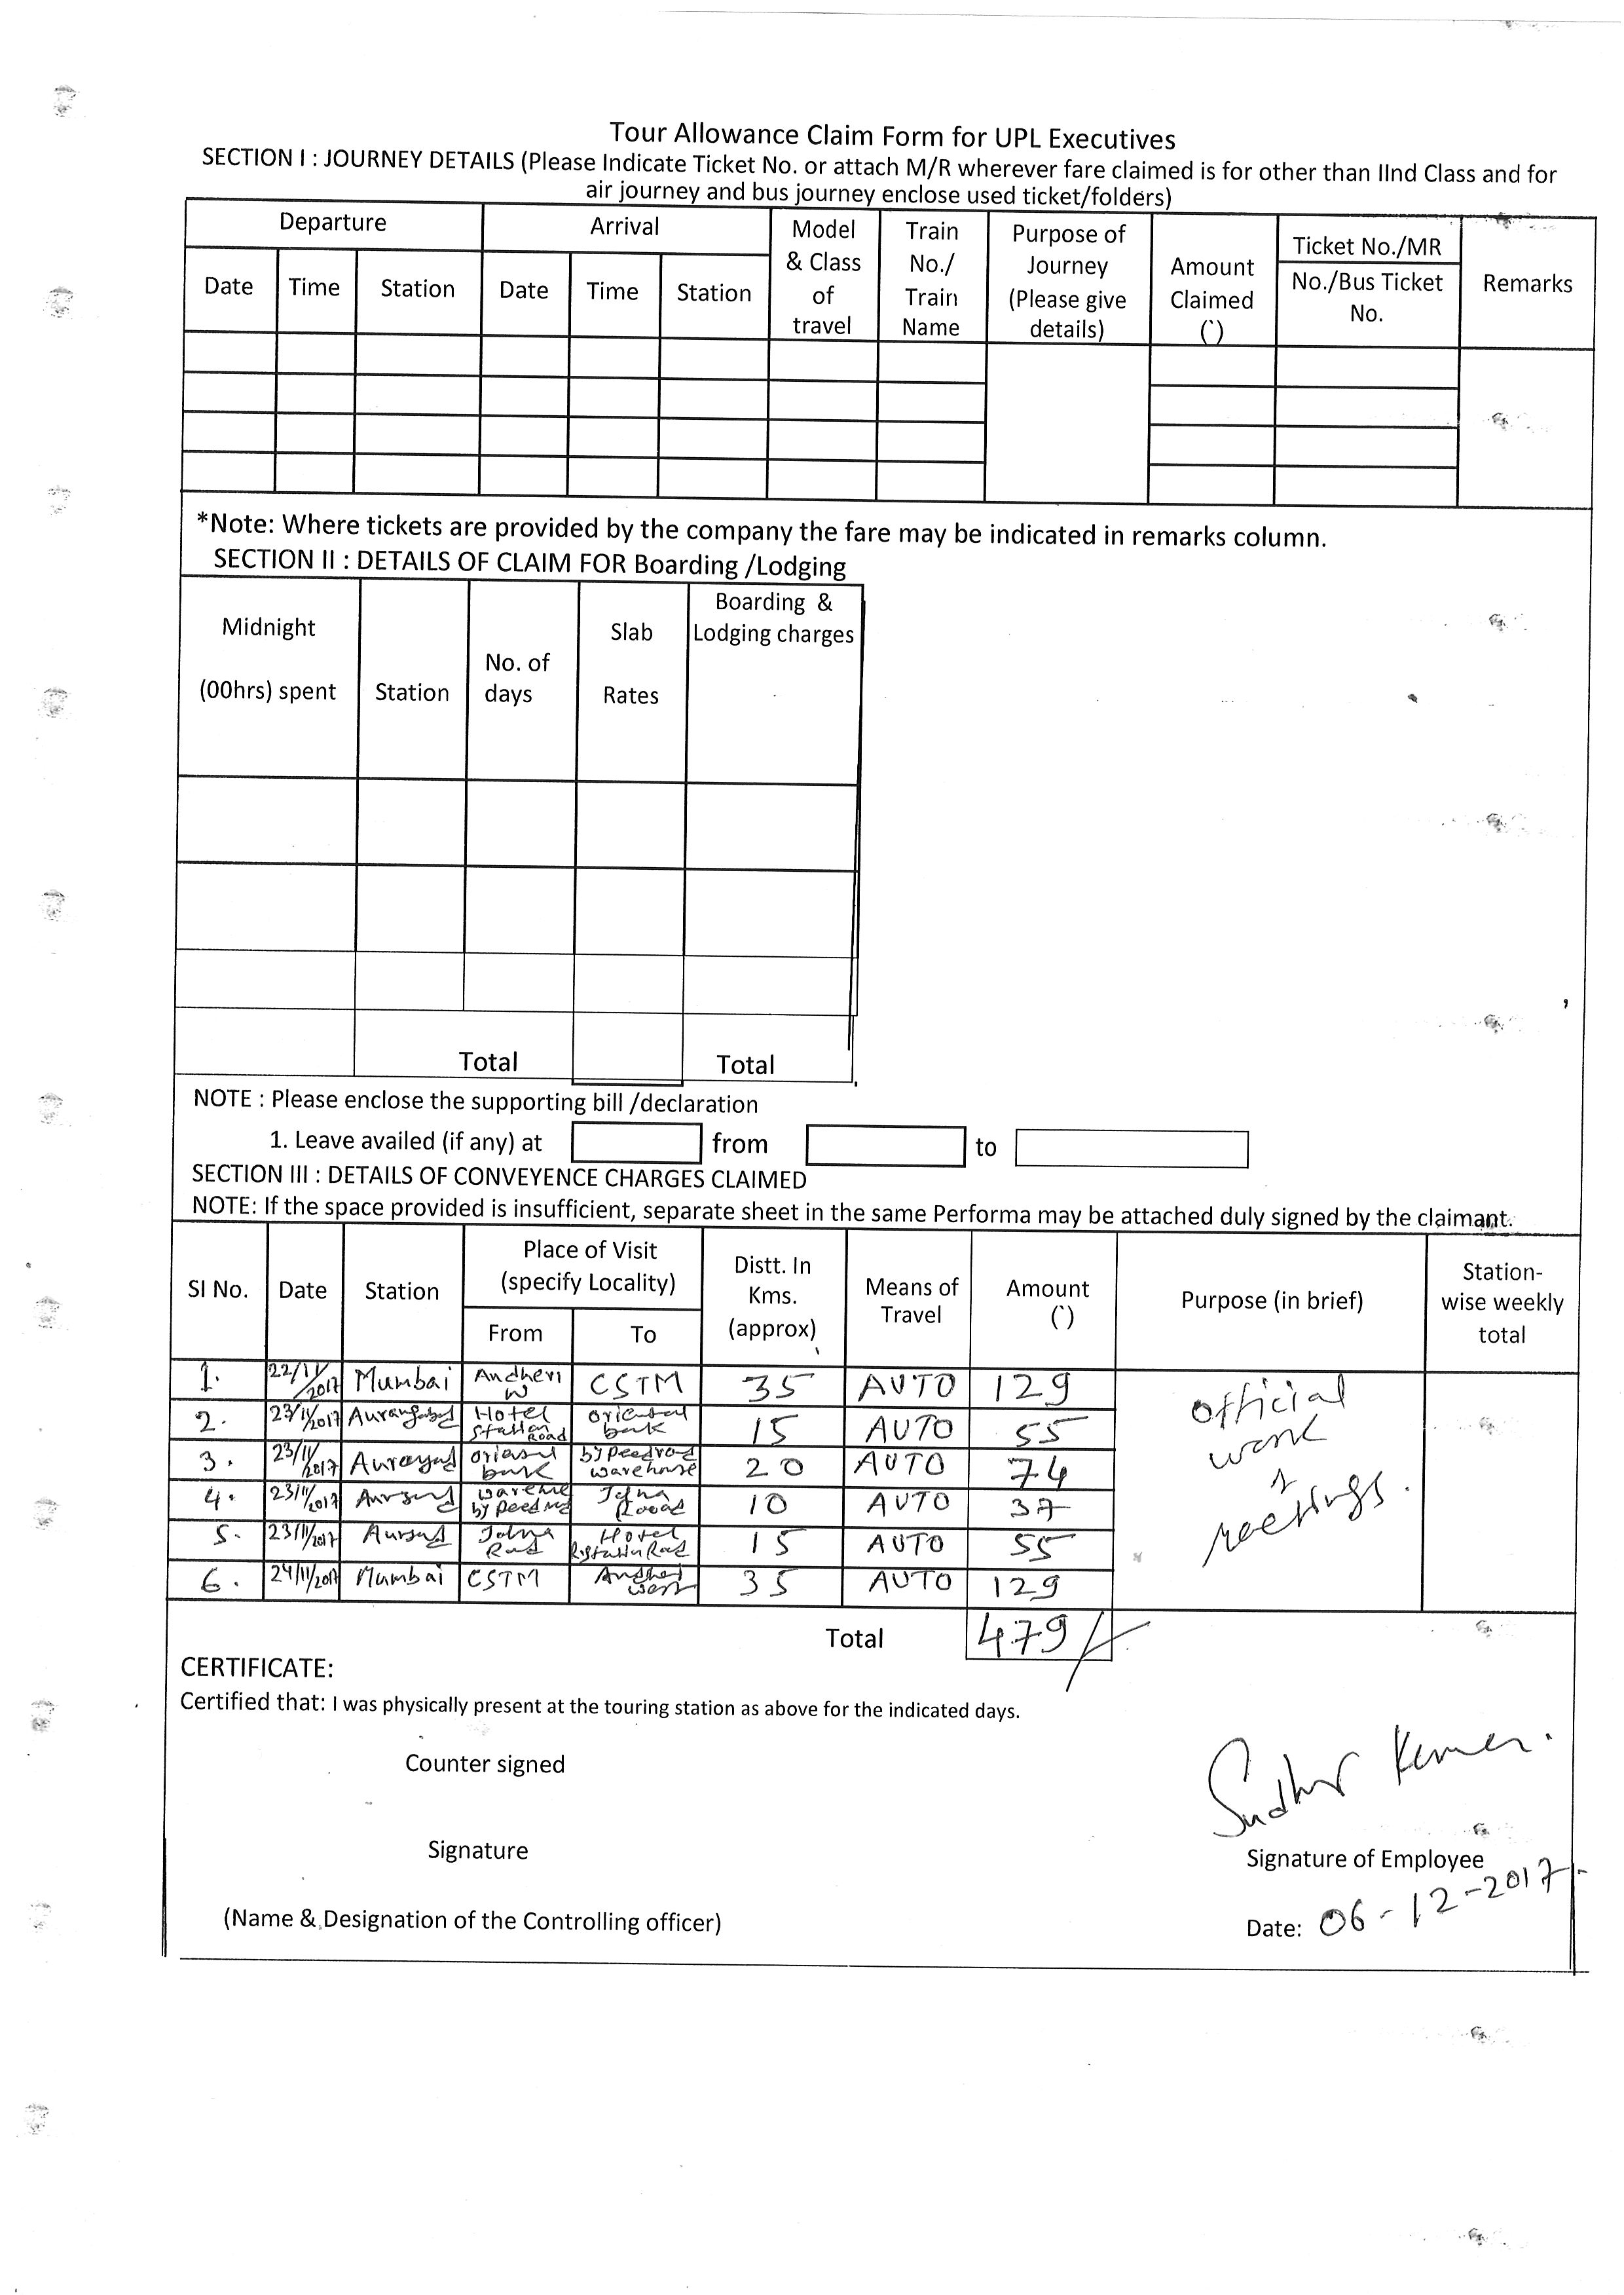 Tour Allowance Claim Form for UPL Executives
SECTION I : JOURNEY DETAILS (Please Indicate Ticket No. or attach M/R wherever fare claimed is for other than IInd Class and for
air journey and bus journey enclose used ticket/folders)
Departure Arrival Model & Class of travel Train No./ Train Name Purpose of Journey (Please give details) Amount Claimed (`) Ticket No./MR No./Bus Ticket No. Remarks
Date Time Station Date Time Station
*Note: Where tickets are provided by the company the fare may be indicated in remarks column.
SECTION II : DETAILS OF CLAIM FOR Boarding /Lodging
Midnight (00hrs) spent Station No. of days Slab Rates Boarding & Lodging charges
Total Total
NOTE : Please enclose the supporting bill /declaration
1. Leave availed (if any) at from to
SECTION III : DETAILS OF CONVEYENCE CHARGES CLAIMED
NOTE: If the space provided is insufficient, separate sheet in the same Performa may be attached duly signed by the claimant.
Sl No. Date Station Place of Visit (specify Locality) Distt. In Kms. (approx) Means of Travel Amount (`) Purpose (in brief) Station-wise weekly total
From To
1. 22/11/2017 Mumbai Andheri W CSTM 35 AUTO 129 official work & meetings.
2. 23/11/2017 Aurangabad Hotel Station Road oriental bank 15 AUTO 55
3. 23/11/2017 bank warehouse 20 AUTO 74
4. 23/11/2017 Jalna Road 10 AUTO 37
5. 23/11/2017 Jalna Road Hotel 15 AUTO 55
6. 24/11/2017 Mumbai CSTM Andheri west 35 AUTO 129
Total 479/
CERTIFICATE:
Certified that: I was physically present at the touring station as above for the indicated days.
Counter signed
Sudhir Kumar.
Signature
Signature of Employee
(Name & Designation of the Controlling officer)
Date: 06-12-2017